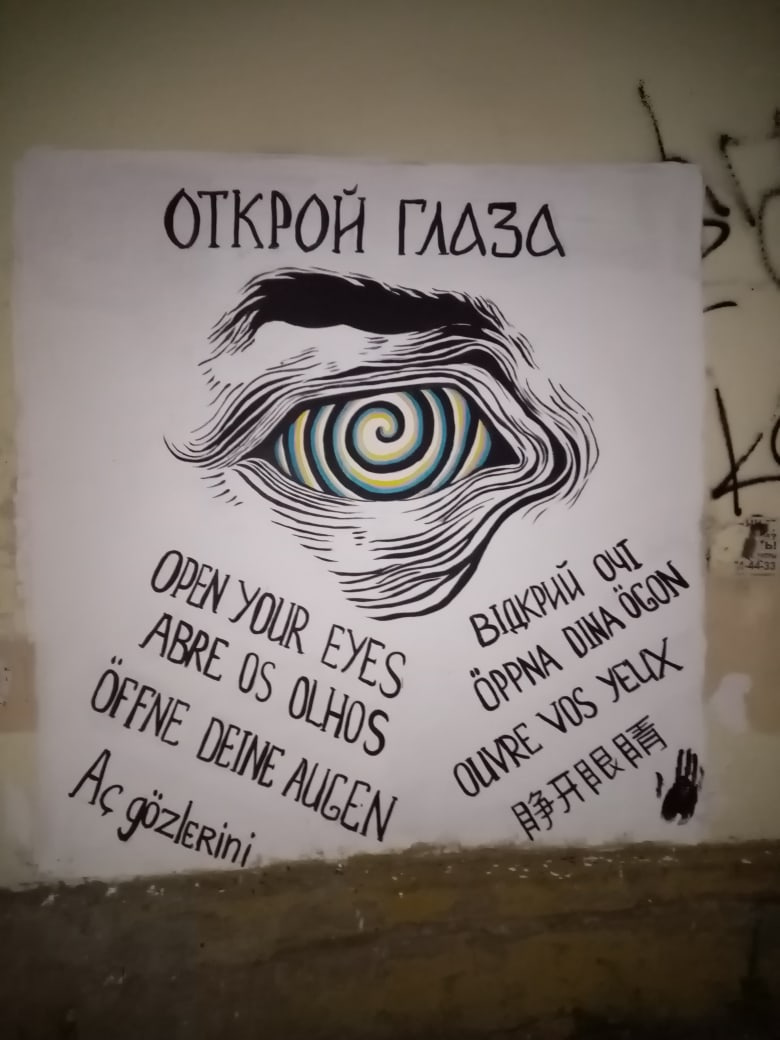 ОТКРОЙ ГЛАЗА
OPEN YOUR EYES
ABRE OS OLHOS
ÖFFNE DEINE AUGEN
Aç gözlerini
ВІДКРИЙ ОЧІ
ÖPPNA DINA ÖGON
OUVRE VOS YEUX
睁开眼睛
44-33